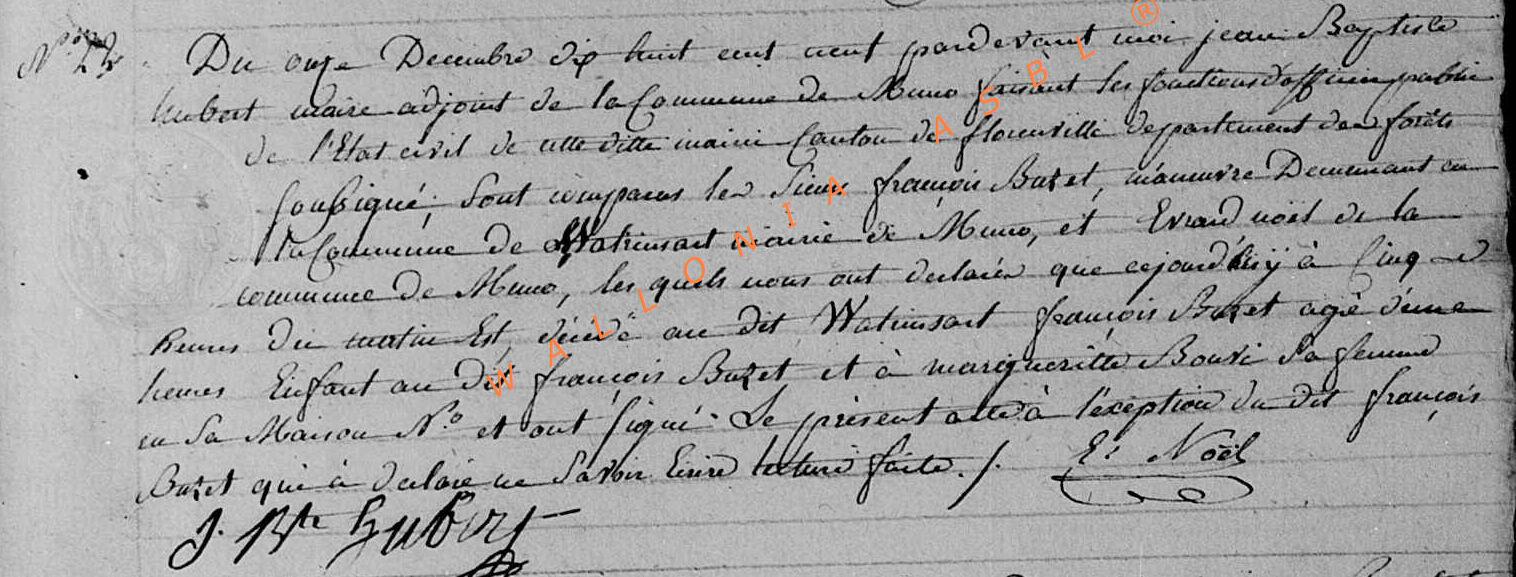 N° 22
Du onze Decembre dix huit cent neuf pardevant moi jean Baptiste
hubert maire adjoint de la Commune de Muno faisant les fonctions d'officier public
de l'Etat civil de cette ditte mairie Canton de florenville departement des forêts
soussigné, sont comparus les Sieurs françois Buzet, manœuvre Demeurant en
la Commune de Watrinsart mairie de Muno, et Evrard noël de la
commune de Muno, les quels nous ont declarés que cejourd'huy à Cinq
heures du matin Est décédé au dit Watrinsart françois Buzet agé d'une
heures Enfant au dit françois Buzet et à margueritte Bouvi Sa femme
en Sa Maison N° et ont signé Le présent acte à l'exeption du dit françois
Buzet qui à declaré ne Savoir Ecrire lecture faite ./.
E: Noël
J. Bte hubert
WALLONIA ASBL ®